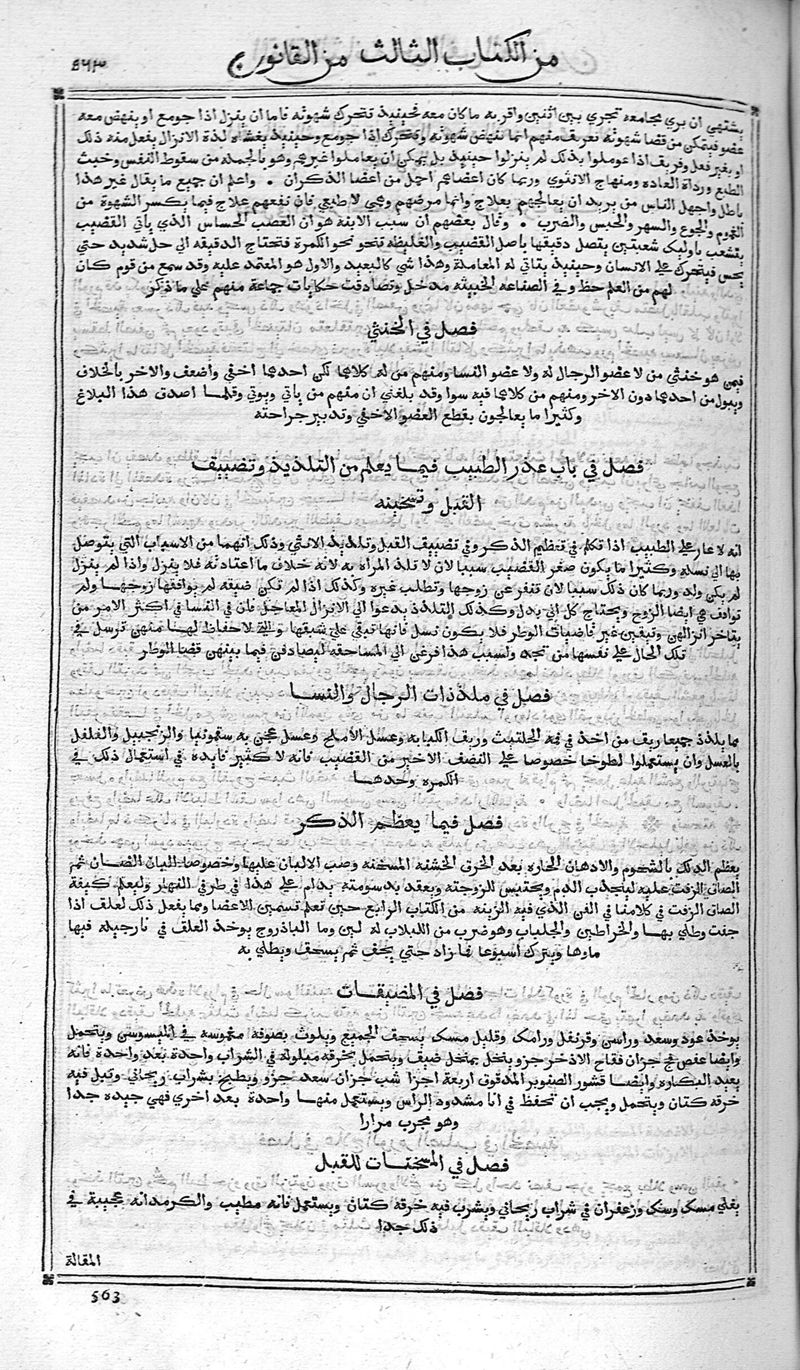 ٥٦٣
من الكتاب الثالث من القانون
يشتهي ان يري مجامعه تجري بين اثنين واقربه ما كان معه فحينيذ تتحرك شهوته فاما ان ينزل اذا جومع او ينهض معه
عضو فيتمكن من قضا شهوته وفريق منهم انما تنهض شهوته وتتحرك اذا جومع وحينيذ يغشاه لذة الانزال بفعل منه ذلك
او بغير فعل وفريق اذا عوملوا بذلك لم ينزلوا حينيذ بل يمكن ان يعاملوا غيرهم وهو بالجمله من سقوط النفس وخبث
الطبع ورداة العاده ومنهاج الانثوي وربما كان اعضاهم اجمل من اعضا الذكران . واعلم ان جميع ما يقال غير هذا
باطل واجهل الناس من يريد ان يعالجهم بعلاج وانما مرضهم وهمي لا طبيعي فان نفعهم علاج فيما يكسر الشهوة من
الغموم والجوع والسهر والحبس والضرب . وقال بعضهم ان سبب الابنه هو ان العصب الحساس الذي ياتي القضيب
يتشعب باوليك شعبتين يتصل دقيقها باصل القضيب والغليظه تنحو نحو الكمرة فتحتاج الدقيقه الي حك شديد حتي
يحس فيتحرك علي الانسان وحينيذ يتاتي له المعاملة وهذا شي كالبعيد والاول هو المعتمد عليه وقد سمع من قوم كان
لهم من العلم حظ وفي الصناعه الخبيثه مدخل وتصادقت حكايات جماعة منهم علي ما ذكر
فصل في الخنثي
فيمن هو خنثي من لا عضو الرجال له ولا عضو النسا ومنهم من له كلاهما لكن احدهما اخفي واضعف والاخر بالخلاف
ويبول من احدهما دون الاخر ومنهم من كلاهما فيه سوا وقد بلغني ان منهم من ياتي ويوتي وقلما اصدق هذا البلاغ
وكثيرا ما يعالجون بقطع العضو الاخفي وتدبير جراحته
فصل في باب عذر الطبيب فيما يعلم من التلذيذ وتضييق
القبل وتسخينه
انه لا عار علي الطبيب اذا تكلم في تعظيم الذكر وفي تضييق القبل وتلذيذ الانثي وذلك انهما من الاسباب التي يتوصل
بها الي نسله وكثيرا ما يكون صغر القضيب سببا لان لا تلذ المراة به لانه خلاف ما اعتادته فلا ينزل واذا لم ينزل
لم يكن ولد وربما كان ذلك سببا لان تنفر عن زوجها وتطلب غيره وكذلك اذا لم تكن ضيقه لم يوافقها زوجها ولم
توافق هي ايضا الزوج ويحتاج كل الي بدل وكذلك التلذيذ يدعوا الي الانزال المعاجل فان في النسا في اكثر الامر من
يتاخر انزالهن وتبقين غير قاضيات الوطر فلا يكون نسل فانها تبقي علي شبقها لاحفاظ لهنا منهن ترسل في
تلك الحال علي نفسها من تجده ولسبب هذا فرغن الي المساحقه ليصادفن فيما بينهن قضا الوطر
فصل في ملذذات الرجال والنسا
مما يلذذ جميعا ريق من اخذ في فمه الحلتيت وريق الكبابه وعسل الاملج وعسل عجن به سقمونيا والزنجبيل والفلفل
بالعسل وان يستعملوا لطوخا خصوصا علي النصف الاخير من القضيب فانه لا كثير فايده في استعمال ذلك في
الكمره وحدها
فصل فيما يعظم الذكر
يعظم الدلك بالشحوم والادهان الحاره بعد الخرق الخشنه المسخنه وصب الالبان عليها وخصوصا اليان الضان ثم
الصاق الزفت عليه ليجذب الدم ويحتبس للزوجته ويعقد بدسومته يدام علي هذا في طرفي النهار وليعلم كيفة
الصاق الزفت في كلامنا في الفن الذي فيه الزينه من الكتاب الرابع حين تعلم تسمين الاعضا ومما يفعل ذلك لعلق اذا
جفت وطلي بها والخراطين والحلباب وهو ضرب من اللبلاب له لبن وما الباذروج يوخذ العلق في نارجيله فيها
ماوها ويترك اسبوعا فما زاد حتي يجف ثم يسحق ويطلي به
فصل في المضيقات
يوخذ عود وسعد وراسن وقرنفل ورامك وقليل مسك يسحق الجميع ويلوث بصوفة مغموسه في الميسوسن ويتحمل
وايضا عفص فج جزان فقاح الاذخر جزو ينخل بمنخل ضيق ويتحمل بخرقه مبلوله في الشراب واحدة بعد واحدة فانه
يعيد البكاره وايضا قشور الصنوبر المدقوق اربعة اجزا شب جزان سعد جزو ويطبخ بشراب ريحاني وتبل فيه
خرقه كتان ويتحمل ويجب ان تحفظ في انا مشدود الراس ويستعمل منها واحدة بعد اخري فهي جيده جدا
وهو مجرب مرارا
فصل في المسخنات للقبل
يغلي مسك وسك وزعفران في شراب ريحاني ويشرب فيه خرقه كتان ويستعمل فانه مطيب والكرمدانه عجيبة في
ذلك جدا
المقالة
563